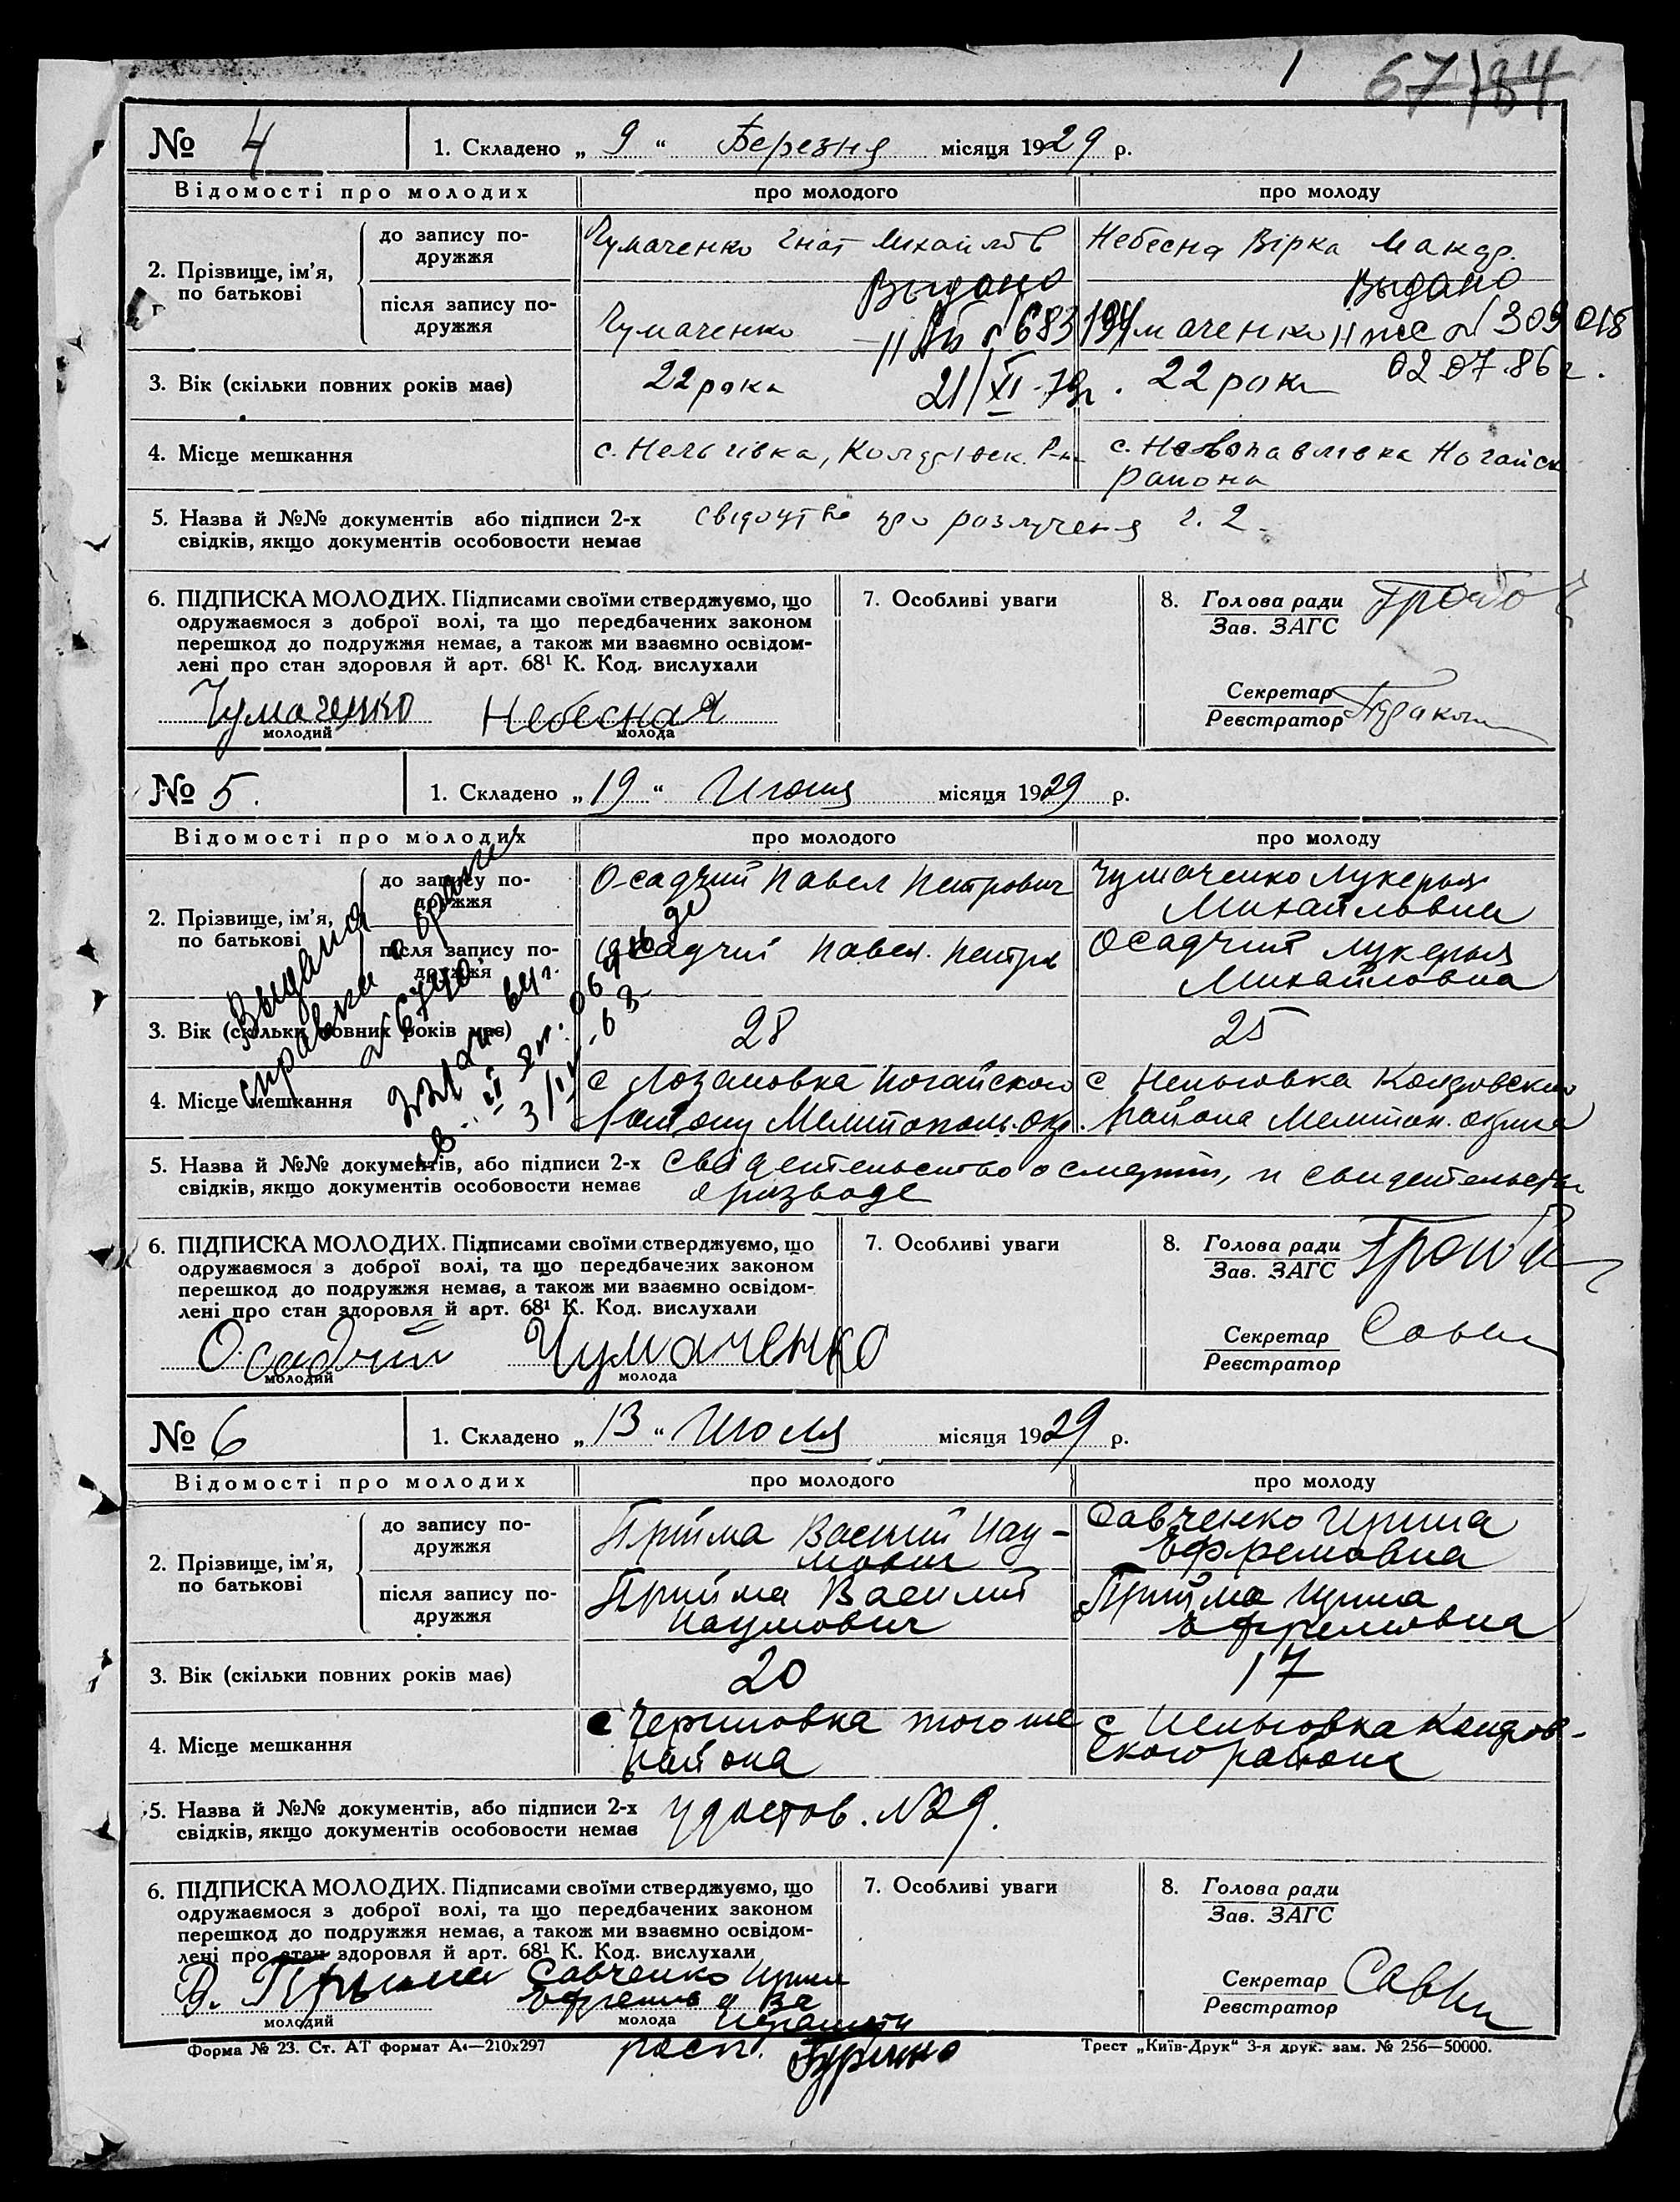 1 67/84
№ 4 1. Складено „ 9 “ Березня місяця 1929 р.
Відомості про молодих про молодого про молоду
2. Прізвище, ім’я, по батькові
до запису по-
дружжя
Чумаченко Гнат Михайлов
Небесна Вірка Макар.
Выдано
Выдано
після запису по-
дружжя
Чумаченко
II № 683194
Чумаченко
II № 309018
3. Вік (скільки повних років має) 22 рока 21/XI-79г. 22 рока 02.07.86г.
4. Місце мешкання
с. Нельгівка, Р-н
с. Новопавлівка Ногайск
района
5. Назва й №№ документів або підписи 2-х
свідків, якщо документів особовости немає
свідоцтво про розлучення ч. 2.
6. ПІДПИСКА МОЛОДИХ. Підписами своїми стверджуємо, що
одружаємося з доброї волі, та що передбачених законом
перешкод до подружжя немає, а також ми взаємно освідом-
лені про стан здоровля й арт. 68¹ К. Код. вислухали
Чумаченко Небесная
молодий молода
7. Особливі уваги
8. Голова ради
Зав. ЗАГС
Секретар
Реєстратор
№ 5. 1. Складено „ 19 “ Июня місяця 1929 р.
Відомості про молодих про молодого про молоду
2. Прізвище, ім’я,
по батькові
до запису по-
дружжя
Осадчий Павел Петрович
Чумаченко Лукерья
Михайловна
після запису по-
дружжя
Осадчий Павел Петр
Осадчий Лукерья
Михайловна
Выдана
справка о браке
3. Вік (скільки повних років має) 28 25
4. Місце мешкання
с Лозановка Ногайского
Району Мелитополь. окр.
с Нельговка
района Мелитоп. округа
5. Назва й №№ документів, або підписи 2-х
свідків, якщо документів особовости немає
Свидетельство о смерти, и свидетельство
о разводе
6. ПІДПИСКА МОЛОДИХ. Підписами своїми стверджуємо, що
одружаємося з доброї волі, та що передбачених законом
перешкод до подружжя немає, а також ми взаємно освідом-
лені про стан здоровля й арт. 68¹ К. Код. вислухали
Осадчий Чумаченко
молодий молода
7. Особливі уваги
8. Голова ради
Зав. ЗАГС
Секретар
Реєстратор
№ 6 1. Складено „ 13 “ Июля місяця 1929 р.
Відомості про молодих про молодого про молоду
2. Прізвище, ім’я,
по батькові
до запису по-
дружжя
Прийма Василий Нау-
мович
Савченко Ирина
Ефремовна
після запису по-
дружжя
Прийма Василий
Наумович
Прийма Ирина
Ефремовна
3. Вік (скільки повних років має) 20 17
4. Місце мешкання
с Черниговка того же
района
с Нельговка
района
5. Назва й №№ документів, або підписи 2-х
свідків, якщо документів особовости немає
Удостов. №29.
6. ПІДПИСКА МОЛОДИХ. Підписами своїми стверджуємо, що
одружаємося з доброї волі, та що передбачених законом
перешкод до подружжя немає, а також ми взаємно освідом-
лені про стан здоровля й арт. 68¹ К. Код. вислухали
Савченко Ирина
молодий молода
расп.
7. Особливі уваги
8. Голова ради
Зав. ЗАГС
Секретар
Реєстратор
Форма № 23. Ст. АТ формат А₄—210x297
Трест „Київ-Друк“ 3-я друк. зам. № 256—50000.